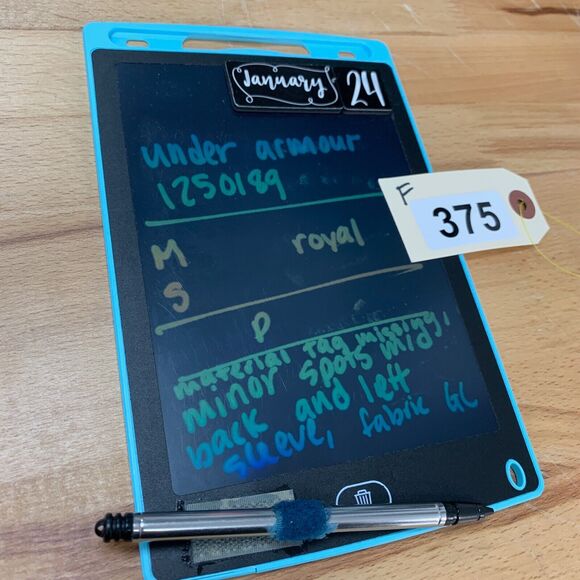 January 24
under armour
1250189
F
375
M royal
S
P
material tag missing,
minor spots mid
back and left
sleeve, fabric GC